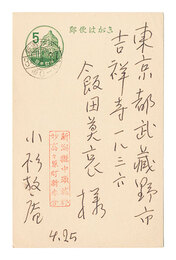 郵便はがき
5
東京都武蔵野市
吉祥寺一八三六
飯田莫哀様
新潟縣中頸
小杉放庵
4.25